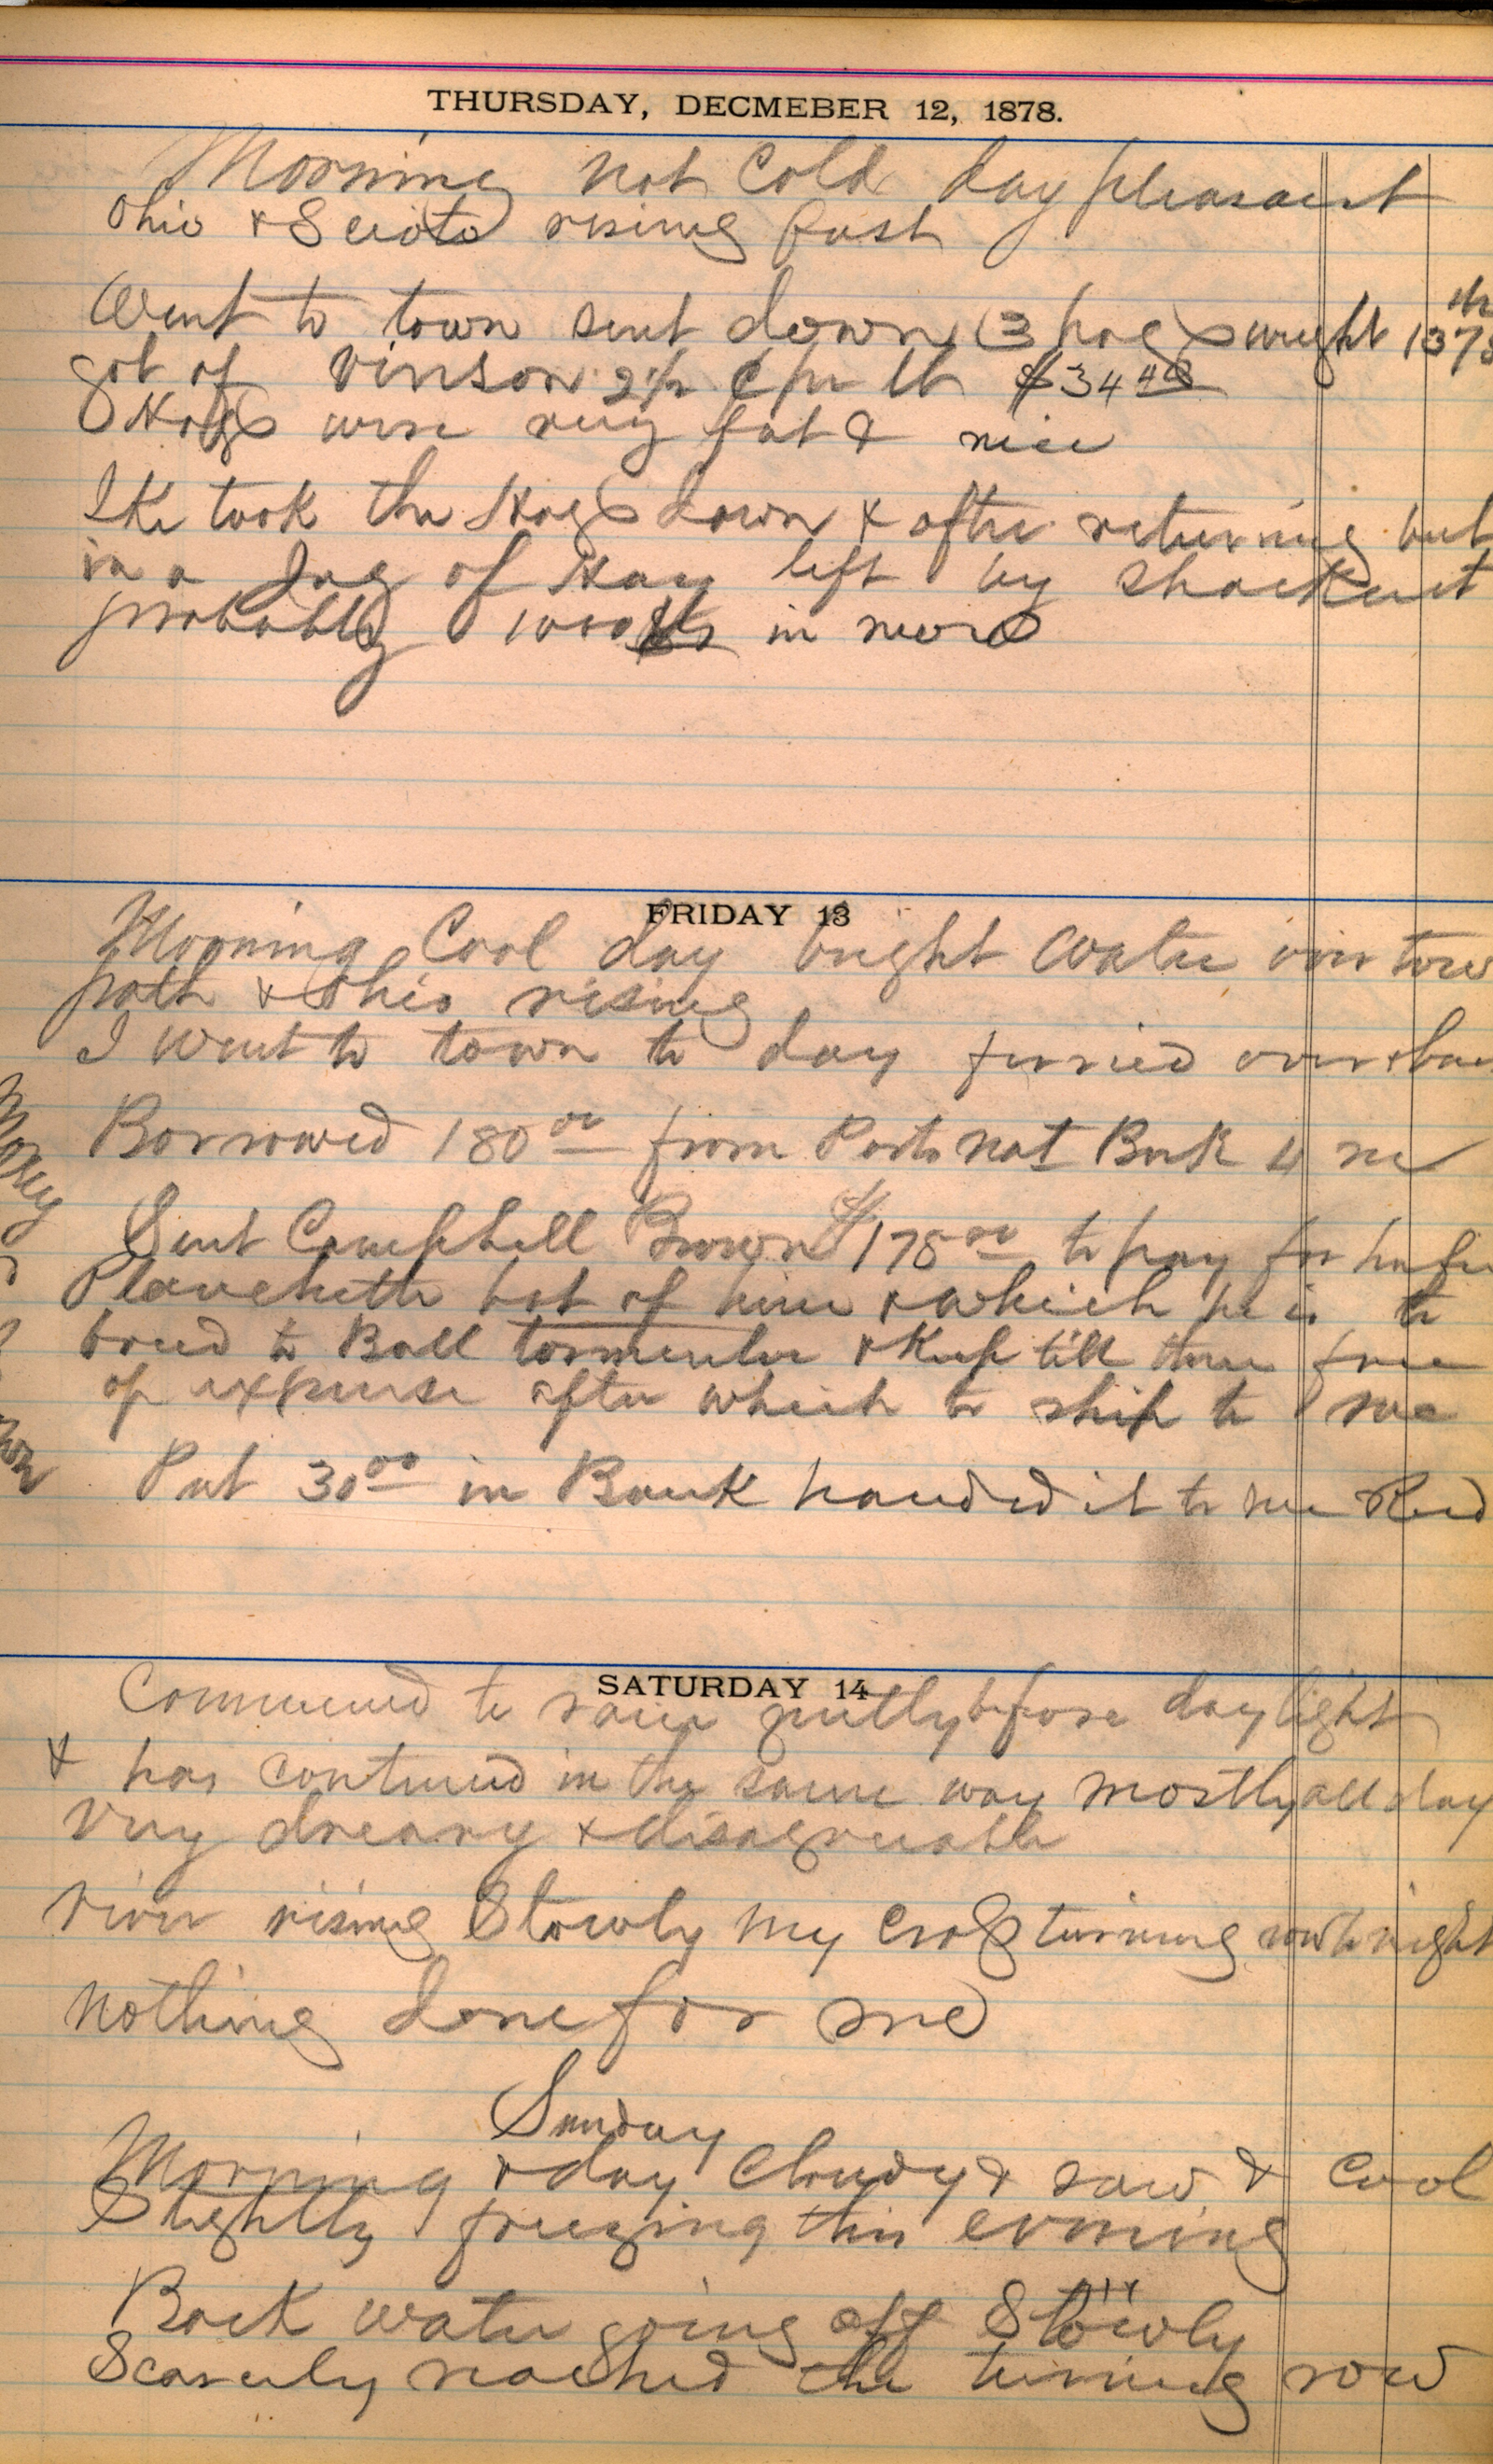 THURSDAY, DECMEBER 12, 1878.
Morning not Cold day pleasant
Ohio & Scioto rising fast
Went to town sent down 3 hogs weight 1375
got of Vinson 2½ ¢ per lb $34.40
Hogs were very fat & nice
Ike took the Hogs down & after returning
in a Jag of Hay left by
probably 1000 lbs in
FRIDAY 13
Morning Cool day bright Water over tow
path & Ohio rising
I went to town to day ferried over &
Borrowed 180 00 from Ports Nat Bank 4
Sent Campbell Brown $175 00 to pay for heifer
bot of him & which he is to
breed to Bull tormentor & Keep till then free
of expense after which to ship to me
Put 30 00 in Bank handed it to Mr Reed
SATURDAY 14
Commenced to rain gently before daylight
& has continued in the same way mostly all day
Very dreary & disagreeable
river rising Slowly my turning row to night
nothing done for me
Sunday
Morning & day Cloudy & raw & Cool
Slightly freezing this evening
Back water going off Slowly
Scarcely reached the turning row